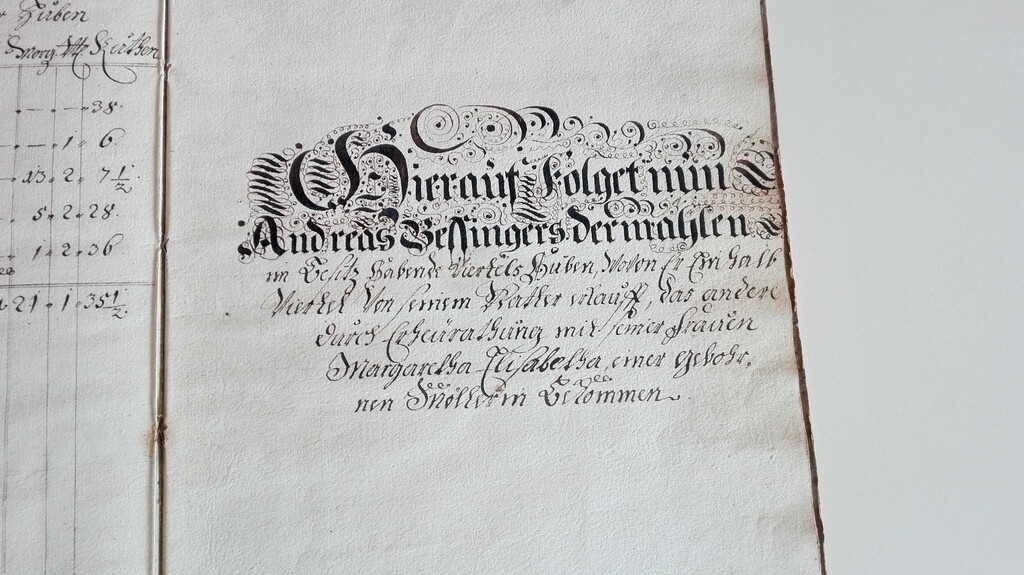 Huben
Morg. Vtl. Ruthen
— — — 38.
— — 1. 6.
13. 2. 7 1/2
5. 2. 28.
1. 2. 36
21. 1. 35 1/2.
Hierauf Folget nun
Andreas Bessingers dermahlen
im Besitz Habende Viertels Huben, Wovon Er Ein halb
Viertel Von seinem Vatter erkaufft, das andere
durch Erheurathung mit seiner Frauen
Margaretha Elisabetha, einer gebohr,
nen Möllerin Bekommen.